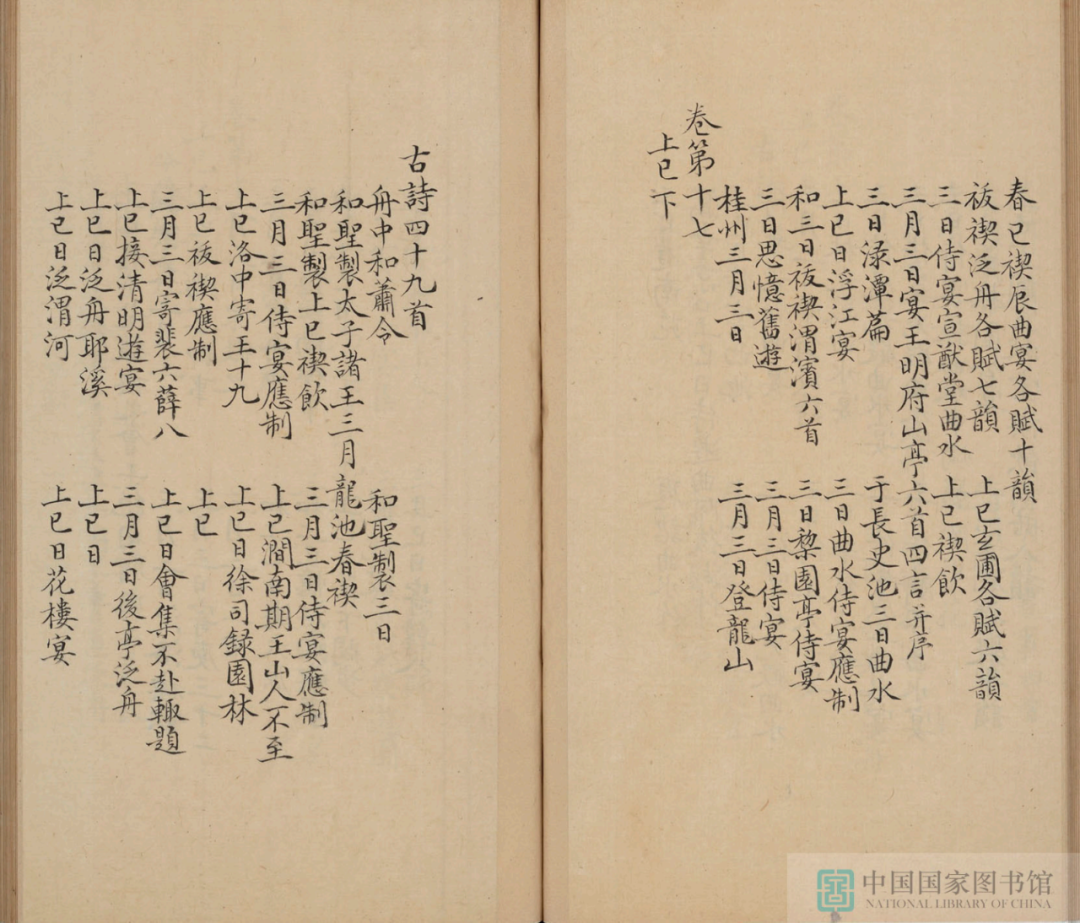 春巳禊辰曲宴各賦十韻
祓禊泛舟各賦七韻　上巳玄圃各賦六韻
三日侍宴宣猷堂曲水　上巳禊飲
三月三日宴王明府山亭六首四言并序
三日淥潭篇　于長史池三日曲水
上巳日浮江宴　三日曲水侍宴應制
和三日祓禊渭濱六首　三日梨園亭侍宴
三日思憶舊遊　三月三日侍宴
桂州三月三日　三月三日登龍山
卷第十七
上巳下
古詩四十九首
舟中和蕭令　和聖製三日
和聖製太子諸王三月龍池春禊
和聖製上巳禊飲　三月三日侍宴應制
三月三日侍宴應制　上巳澗南期王山人不至
上巳洛中寄王十九　上巳日徐司録園林
上巳祓禊應制　上巳
三月三日寄裴六薛八　上巳日會集不赴輙題
上巳接清明遊宴　三月三日後亭泛舟
上巳日泛舟耶溪　上巳日
上巳日泛渭河　上巳日花樓宴
中国国家图书馆
NATIONAL LIBRARY OF CHINA